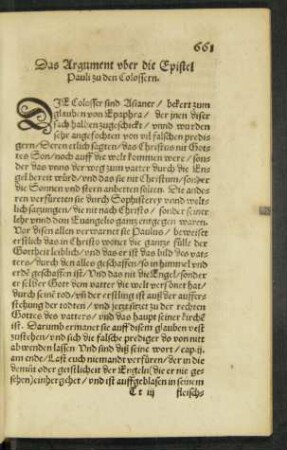 661
Das Argument vber die Epistel
Pauli zu den Colossern.
DIE Colosser sind Asianer / bekert zum
glauben von Epaphra / der jnen diser
sach halben zugeschickt / vnnd wurden
sehr angefochten von vil falschen predi
gern / Deren etlich sagten / das Christus nit Gottes
Son / noch auff die welt kommen were / sonder
das vnns der weg zum vatter durch die Engel
bereit würd / vnd das sie nit Christum / sonder
die Sonnen vnd stern anbetten solten. Die anderen
verfürten sie durch Sophisterey vnnd weltlich
satzungen / die nit nach Christo / sonder seiner
lehr vnnd dem Euangelio gantz entgegen waren.
Vor disen allen verwarnet sie Paulus / beweiset
erstlich das in Christo wonet die gantze fülle der
Gottheit leiblich / vnd das er ist das bild des vatters /
durch den alles geschaffen / so in himmel vnd
erde geschaffen ist / Vnd das nit die Engel / sonder
er selber Gott dem vatter die welt versönet hat /
durch seine tod / vñ der erstling ist auß der aufferstehung
der todten / vnd jetzt sitzt zu der rechten
Gottes des vatters / vnd das haupt seiner kirchē
ist. Darumb ermanet sie auff disem glauben vest
zustehen / vnd sich die falsche prediger do von nitt
abwenden lassen Vnd sind diß seine wort / cap. ij.
am ende / Last euch niemandt verfüren / der in die
demüt oder geistlicheit der Engeln (die er nie gesehen)
einher gehet / vnd ist auffgeblasen in seinem
Tt iij fleisch-